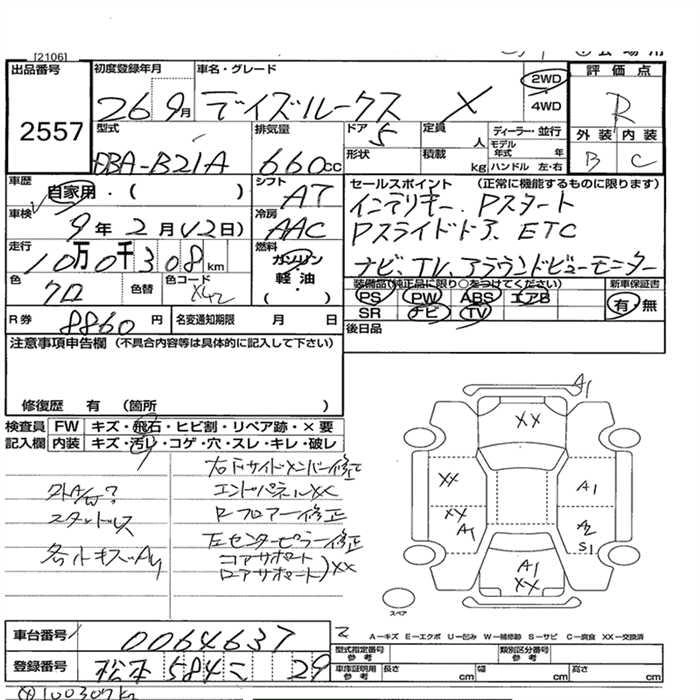 [2106]
出品番号
2557
初度登録年月
26 9月
車名・グレード
デイズルークス X
2WD
4WD
評価点
R
外装 内装
B C
型式
DBA-B21A
排気量
660cc
ドア 5
形状
定員 人
積載 kg
ディーラー・並行
モデル年式 年
ハンドル 左・右
車歴
自家用・( )
シフト
AT
車検
9年2月(12日)
冷房
AAC
走行
10万0千308km
燃料
ガソリン
軽・油
( )
色
クロ
色替
色コード
セールスポイント (正常に機能するものに限ります)
インテリキー、Pスタート
Pスライドドア、ETC
ナビ、TV、アラウンドビューモニター
装備品(純正品に限り○をつけてください)
新車保証書
PS PW ABS エアB
有・無
SR ナビ TV
後日品
R券 8860円
名変通知期限 月 日
注意事項申告欄 (不具合内容等は具体的に記入して下さい)
修復歴 有 (箇所 )
検査員
記入欄
FW キズ・飛石・ヒビ割・リペア跡・×要
内装 キズ・汚レ・コゲ・穴・スレ・キレ・破レ
外A/W?
スタッドレス
各小キズ凹AU
右Fサイドメンバー修正
エンドパネルXX
Rフロアー修正
左センターピラー修正
コアサポート
ロアサポート)XX
A1
XX
XX
XX
A1
A1
A2
S1
A1
XX
スペア
A-キズ E-エクボ U-凹み W-補修跡 S-サビ C-腐食 XX-交換済
車台番号
0064637
登録番号
松本 584 こ 29
型式指定番号
参考
類別区分番号
参考
車庫証明用
参考
長さ cm
幅 cm
高さ cm
100307k